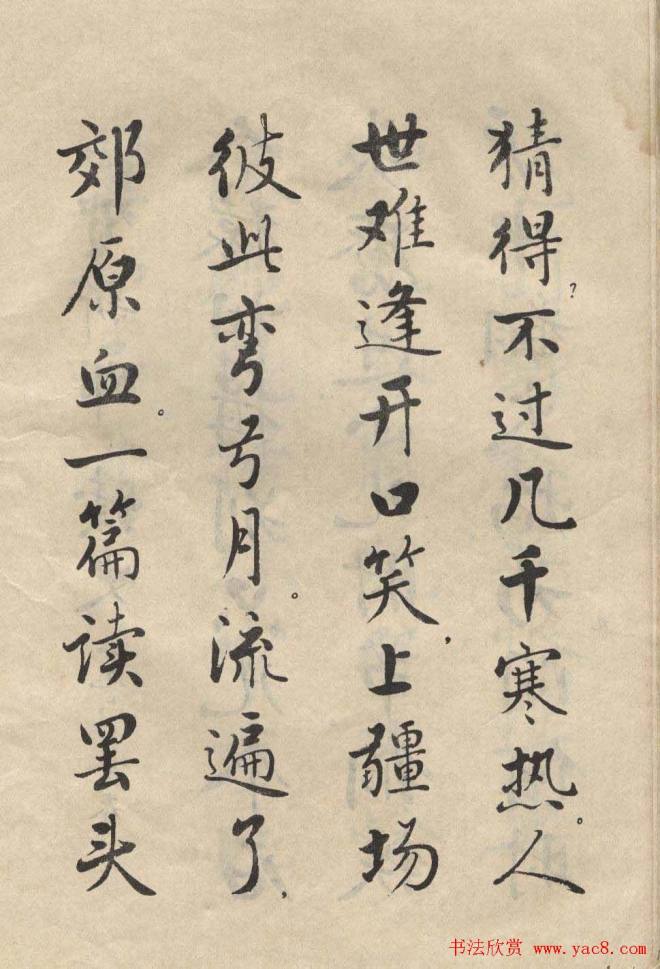 猜得?不过几千寒热。人
世难逢开口笑,上疆场
彼此弯弓月。流遍了,
郊原血。一篇读罢头
书法欣赏 www.yac8.com